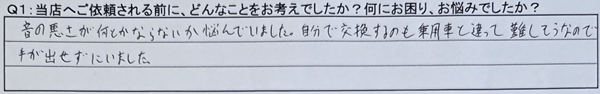 Q1：当店へご依頼される前に、どんなことをお考えでしたか？何にお困り、お悩みでしたか？
音の悪さが何とかならないか悩んでいました。自分で交換するのも乗用車と違って難しそうなので
手が出せずにいました